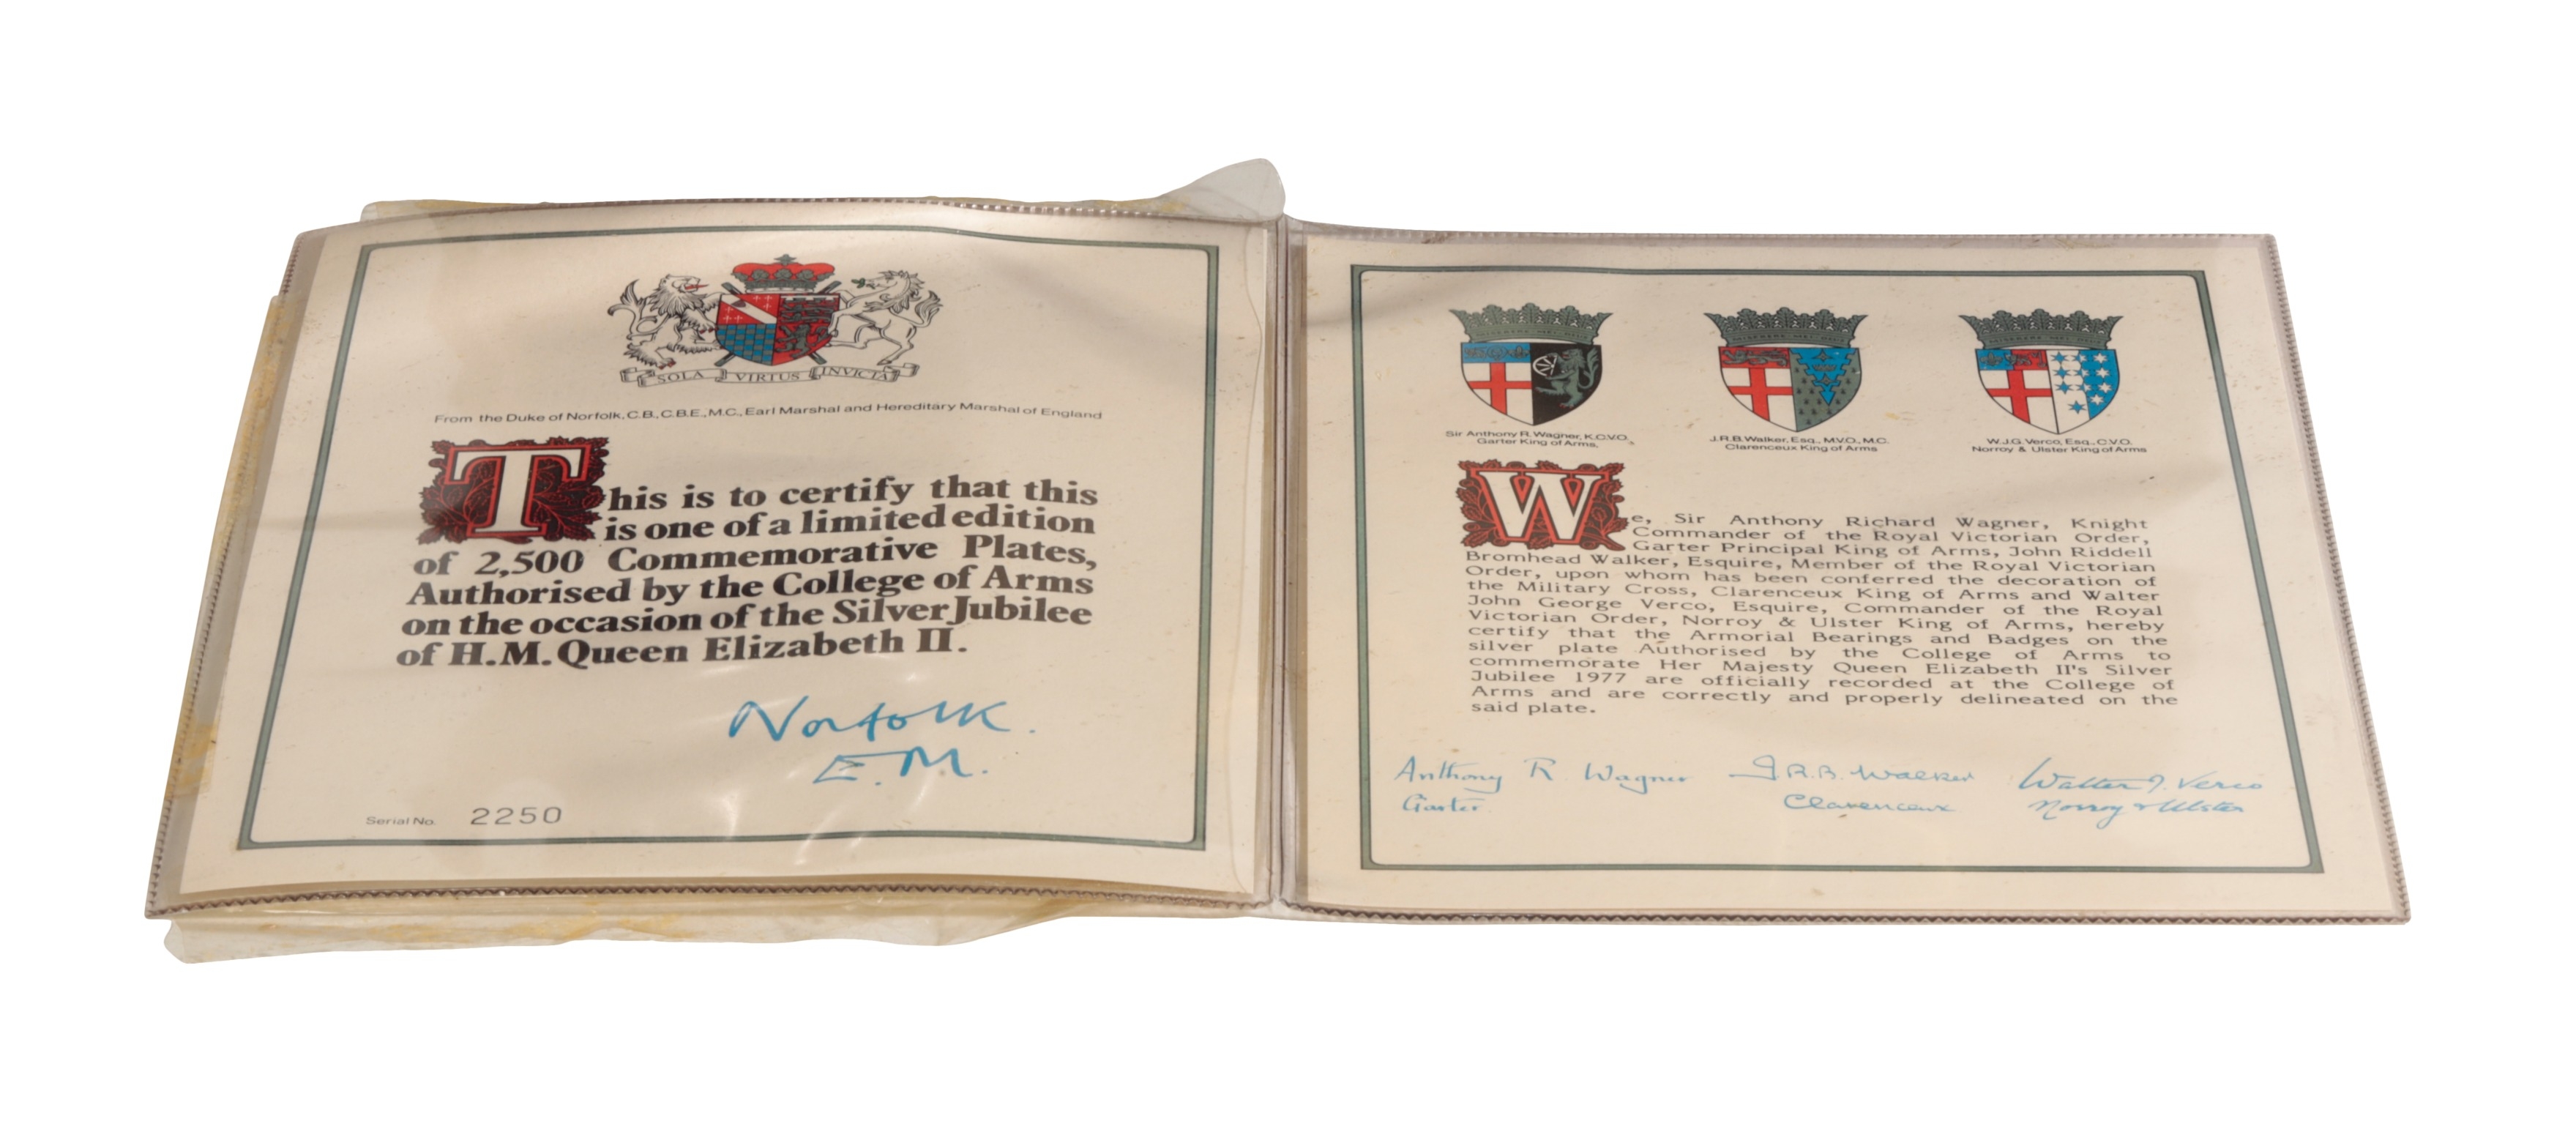 SOLA VIRTUS INVICTA
From the Duke of Norfolk, C.B., C.B.E., M.C., Earl Marshal and Hereditary Marshal of England
This is to certify that this
is one of a limited edition
of 2,500 Commemorative Plates,
Authorised by the College of Arms
on the occasion of the Silver Jubilee
of H.M. Queen Elizabeth II.
Norfolk.
E.M.
Serial No. 2250
Sir Anthony R. Wagner, K.C.V.O.,
Garter King of Arms.
J.R.B. Walker, Esq., M.V.O., M.C.
Clarenceux King of Arms
W.J.G. Verco, Esq., C.V.O.
Norroy & Ulster King of Arms
We, Sir Anthony Richard Wagner, Knight
Commander of the Royal Victorian Order,
Garter Principal King of Arms, John Riddell
Bromhead Walker, Esquire, Member of the Royal Victorian
Order, upon whom has been conferred the decoration of
the Military Cross, Clarenceux King of Arms and Walter
John George Verco, Esquire, Commander of the Royal
Victorian Order, Norroy & Ulster King of Arms, hereby
certify that the Armorial Bearings and Badges on the
silver plate Authorised by the College of Arms to
commemorate Her Majesty Queen Elizabeth II's Silver
Jubilee 1977 are officially recorded at the College of
Arms and are correctly and properly delineated on the
said plate.
Anthony R Wagner
Garter
J.R.B. Walker
Clarenceux
Walter J. Verco
Norroy & Ulster